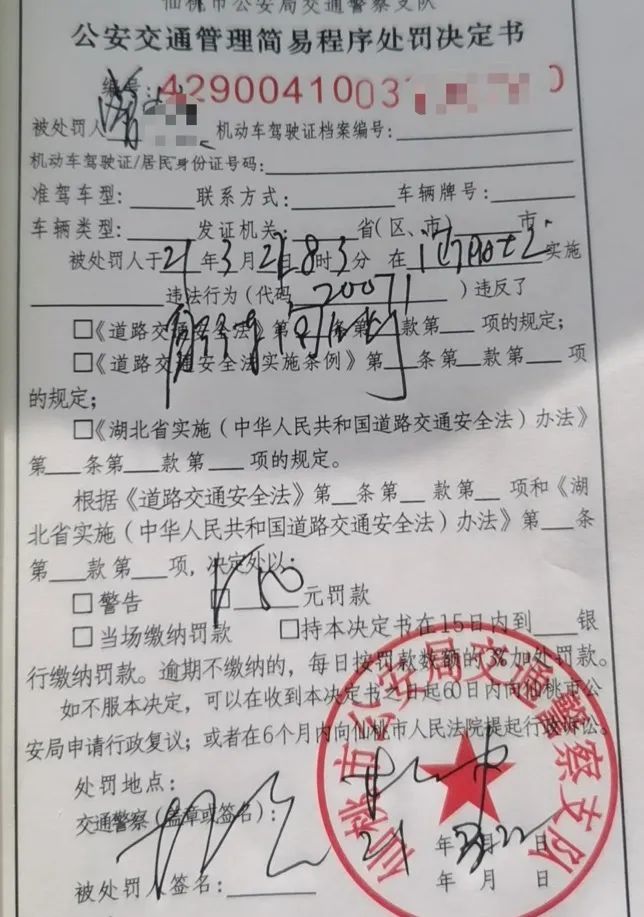 仙桃市公安局交通警察支队
公安交通管理简易程序处罚决定书
编号:42900410037 0
被处罚人 机动车驾驶证档案编号:
机动车驾驶证/居民身份证号码:
准驾车型: 联系方式: 车辆牌号:
车辆类型: 发证机关: 省(区、市) 市
被处罚人于21年3月21日8时3分 在 实施
违法行为(代码 20071 )违反了
□《道路交通安全法》第 条第 款第 项的规定;
□《道路交通安全法实施条例》第 条第 款第 项
的规定;
□《湖北省实施(中华人民共和国道路交通安全法)办法》
第 条第 款第 项的规定。
根据《道路交通安全法》第 条第 款第 项和《湖
北省实施(中华人民共和国道路交通安全法)办法》第 条
第 款第 项,决定处以:
□警告 □ 元罚款
□当场缴纳罚款 □持本决定书在15日内到 银
行缴纳罚款。逾期不缴纳的,每日按罚款数额的3%加处罚款。
如不服本决定,可以在收到本决定书之日起60日内向仙桃市公
安局申请行政复议;或者在6个月内向仙桃市人民法院提起行政诉讼。
处罚地点:
交通警察(盖章或签名):
21年 月22日
被处罚人签名: 年 月 日
仙桃市公安局交通警察支队